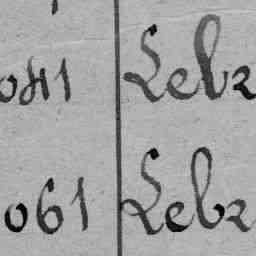 041 Lebr
061 Lebr